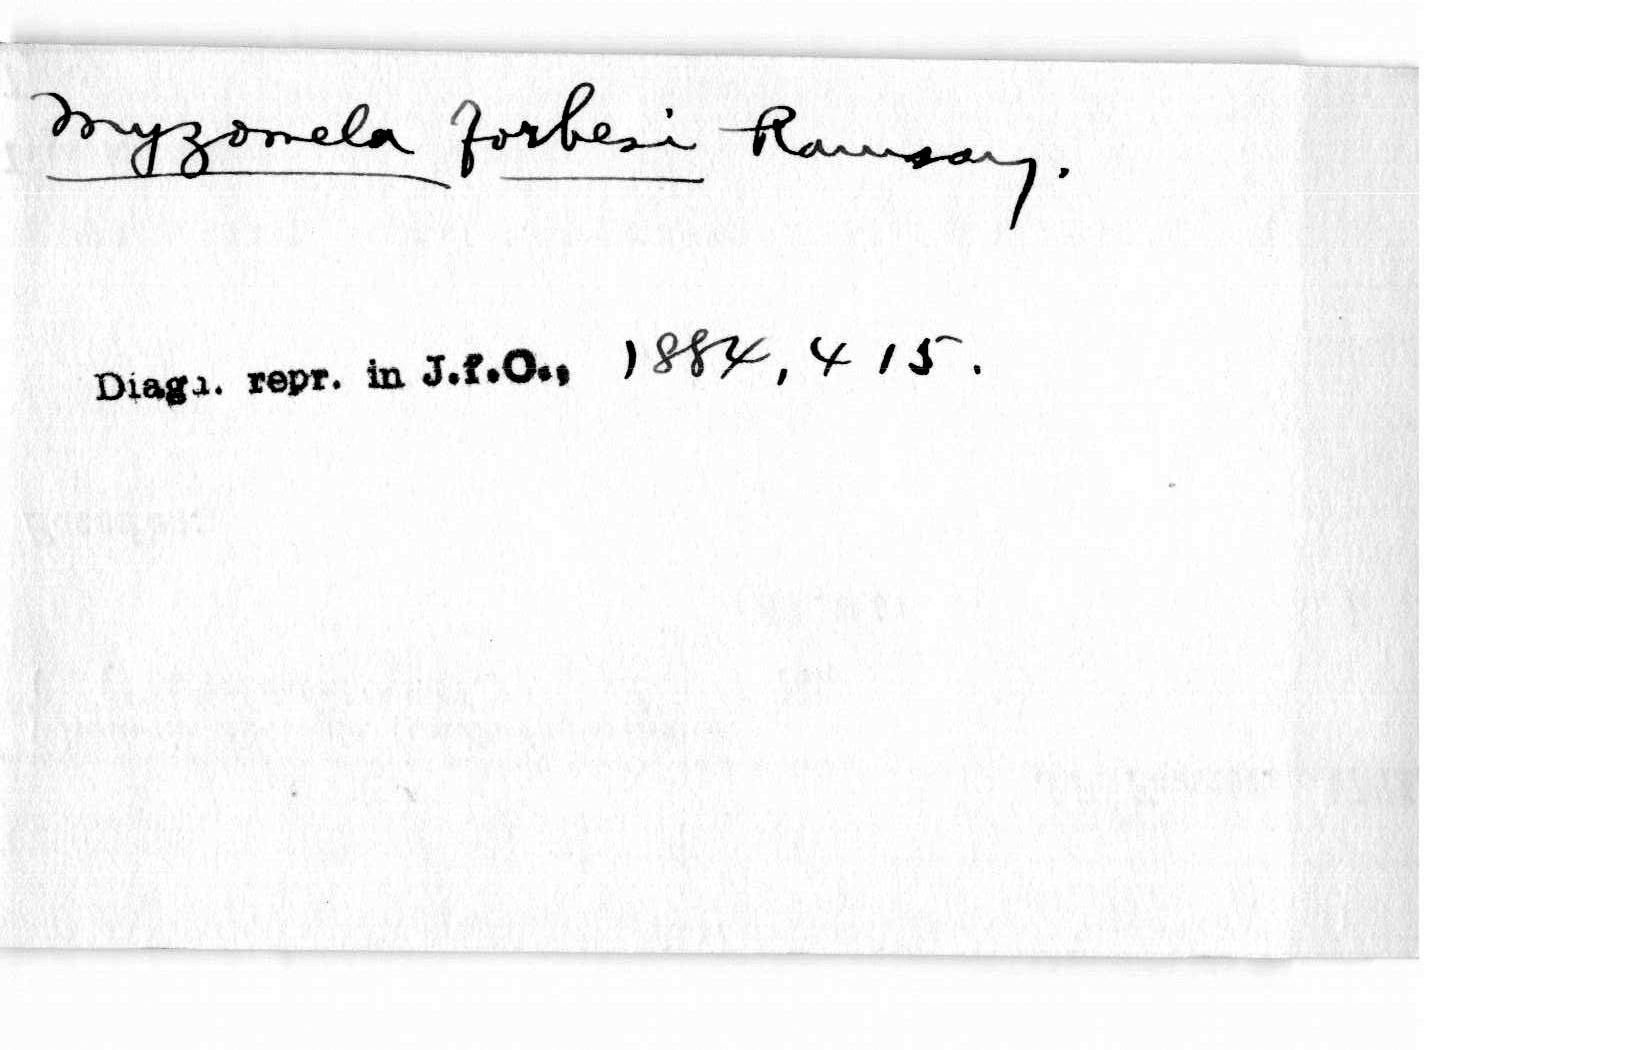 Myzomela forbesi Ramsay.
Diagn. repr. in J.f.O., 1884, 415.